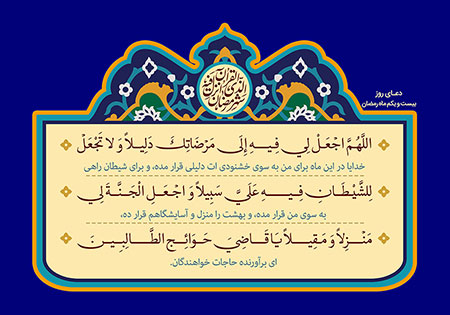 دعـای روز
بیست و یکم ماه رمضان
شهر رمضان الذی انزل فیه القرآن
اللَّهُمَّ اجْعَلْ لِي فِيهِ إِلَى مَرْضَاتِكَ دَلِيلاً وَ لا تَجْعَلْ
خدایا در این ماه برای من به سوی خشنودی ات دلیلی قرار مده، و برای شیطان راهی
لِلشَّيْطَانِ فِيهِ عَلَيَّ سَبِيلاً وَ اجْعَلِ الْجَنَّةَ لِي
به سوی من قرار مده، و بهشت را منزل و آسایشگاهم قرار ده،
مَنْزِلاً وَ مَقِيلاً يَا قَاضِيَ حَوَائِجِ الطَّالِبِينَ
ای برآورنده حاجات خواهندگان.